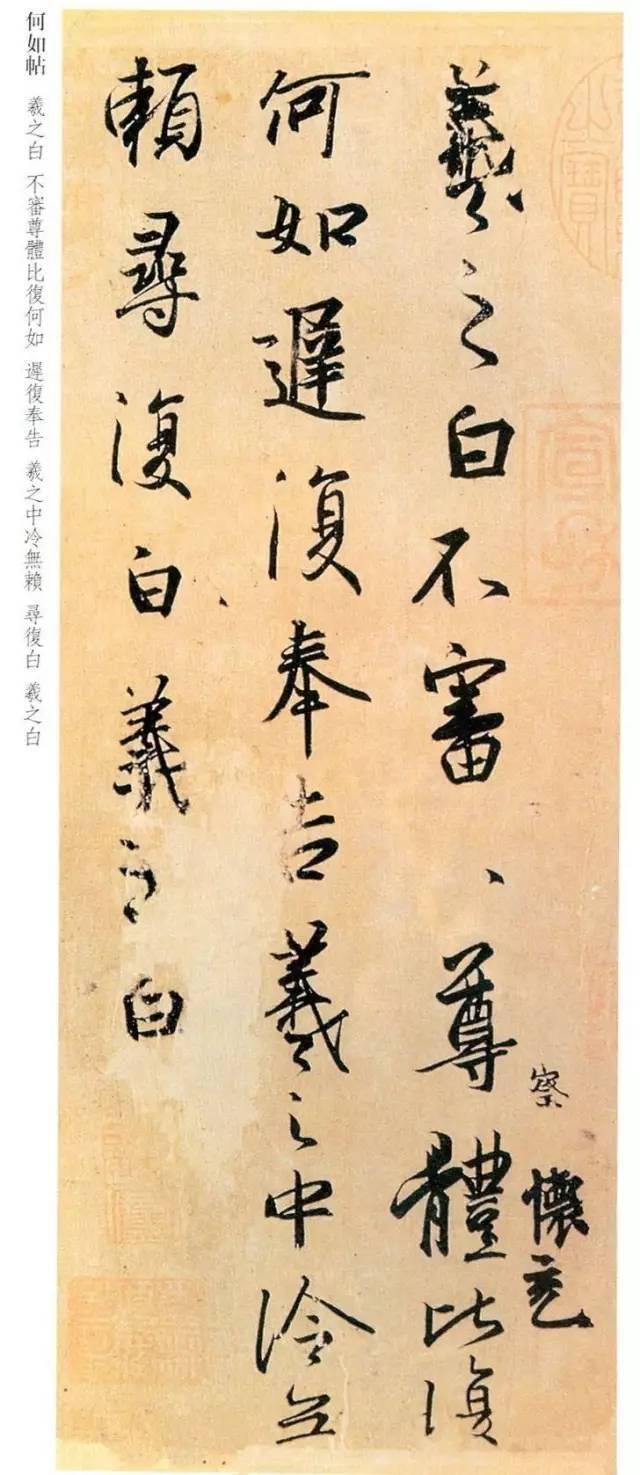 察 懷充
羲之白不審尊體比復
何如遲復奉告羲之中冷無
賴尋復白羲之白
何如帖 羲之白 不審尊體比復何如 遲復奉告 羲之中冷無賴 尋復白 羲之白